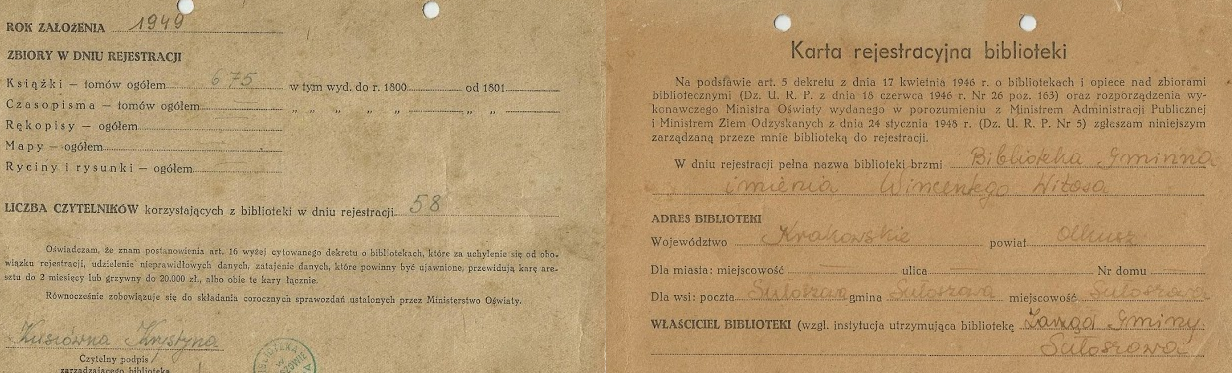 ROK ZAŁOŻENIA 1949
ZBIORY W DNIU REJESTRACJI
Książki — tomów ogółem 675 w tym wyd. do r. 1800 od 1801
Czasopisma — tomów ogółem „ „ „ „ „ „ „
Rękopisy — ogółem
Mapy — ogółem
Ryciny i rysunki — ogółem
LICZBA CZYTELNIKÓW korzystających z biblioteki w dniu rejestracji 58
Oświadczam, że znam postanowienia art. 16 wyżej cytowanego dekretu o bibliotekach, które za uchylenie się od obo-
wiązku rejestracji, udzielenie nieprawidłowych danych, zatajenie danych, które powinny być ujawnione, przewidują karę are-
sztu do 2 miesięcy lub grzywny do 20.000 zł., albo obie te kary łącznie.
Równocześnie zobowiązuje się do składania corocznych sprawozdań ustalonych przez Ministerstwo Oświaty.
Kusiówna Krystyna
Czytelny podpis
zarządzającego biblioteką
Karta rejestracyjna biblioteki
Na podstawie art. 5 dekretu z dnia 17 kwietnia 1946 r. o bibliotekach i opiece nad zbiorami
bibliotecznymi (Dz. U. R. P. z dnia 18 czerwca 1946 r. Nr 26 poz. 163) oraz rozporządzenia wy-
konawczego Ministra Oświaty wydanego w porozumieniu z Ministrem Administracji Publicznej
i Ministrem Ziem Odzyskanych z dnia 24 stycznia 1948 r. (Dz. U. R. P. Nr 5) zgłaszam niniejszym
zarządzaną przeze mnie bibliotekę do rejestracji.
W dniu rejestracji pełna nazwa biblioteki brzmi Biblioteka Gminna
imienia Wincentego Witosa
ADRES BIBLIOTEKI
Województwo Krakowskie powiat Olkusz
Dla miasta: miejscowość ulica Nr domu
Dla wsi: poczta Sułoszowa gmina Sułoszowa miejscowość Sułoszowa
WŁAŚCICIEL BIBLIOTEKI (wzgl. instytucja utrzymująca bibliotekę Zarząd Gminy
Sułoszowa